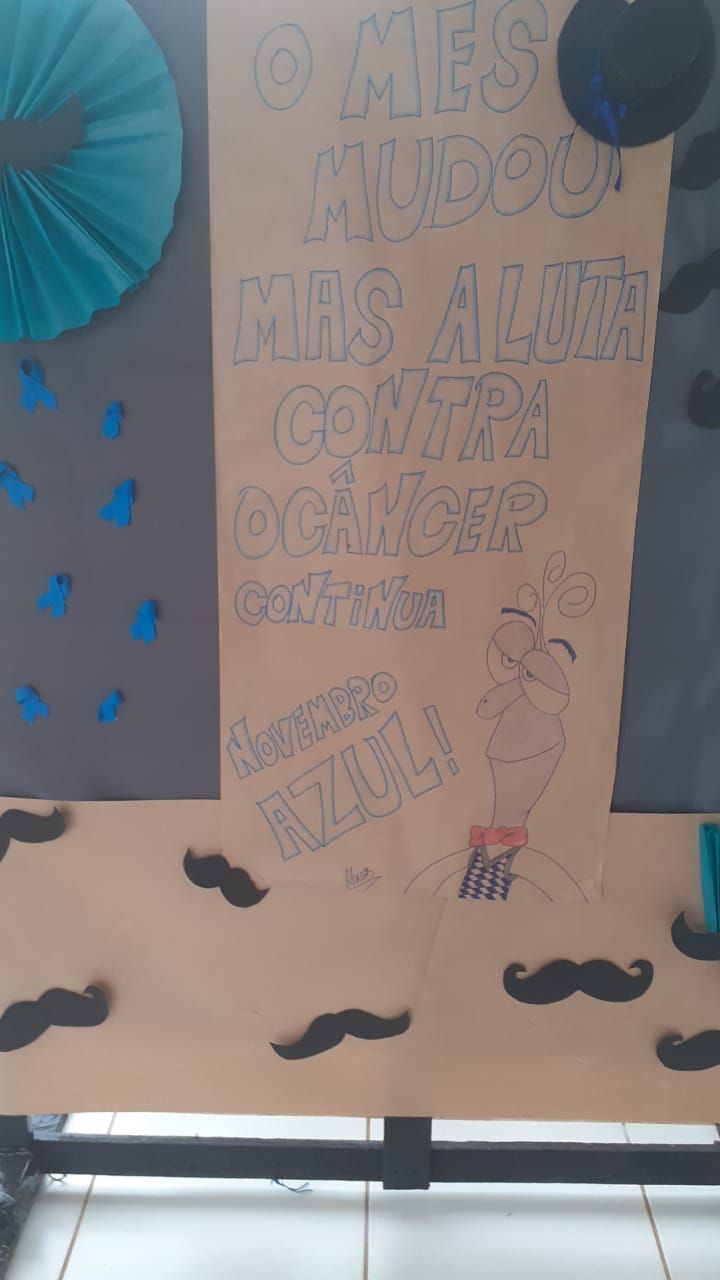 O MES
MUDOU
MAS A LUTA
CONTRA
O CÂNCER
CONTiNUA
NOVEMBRO
AZUL!